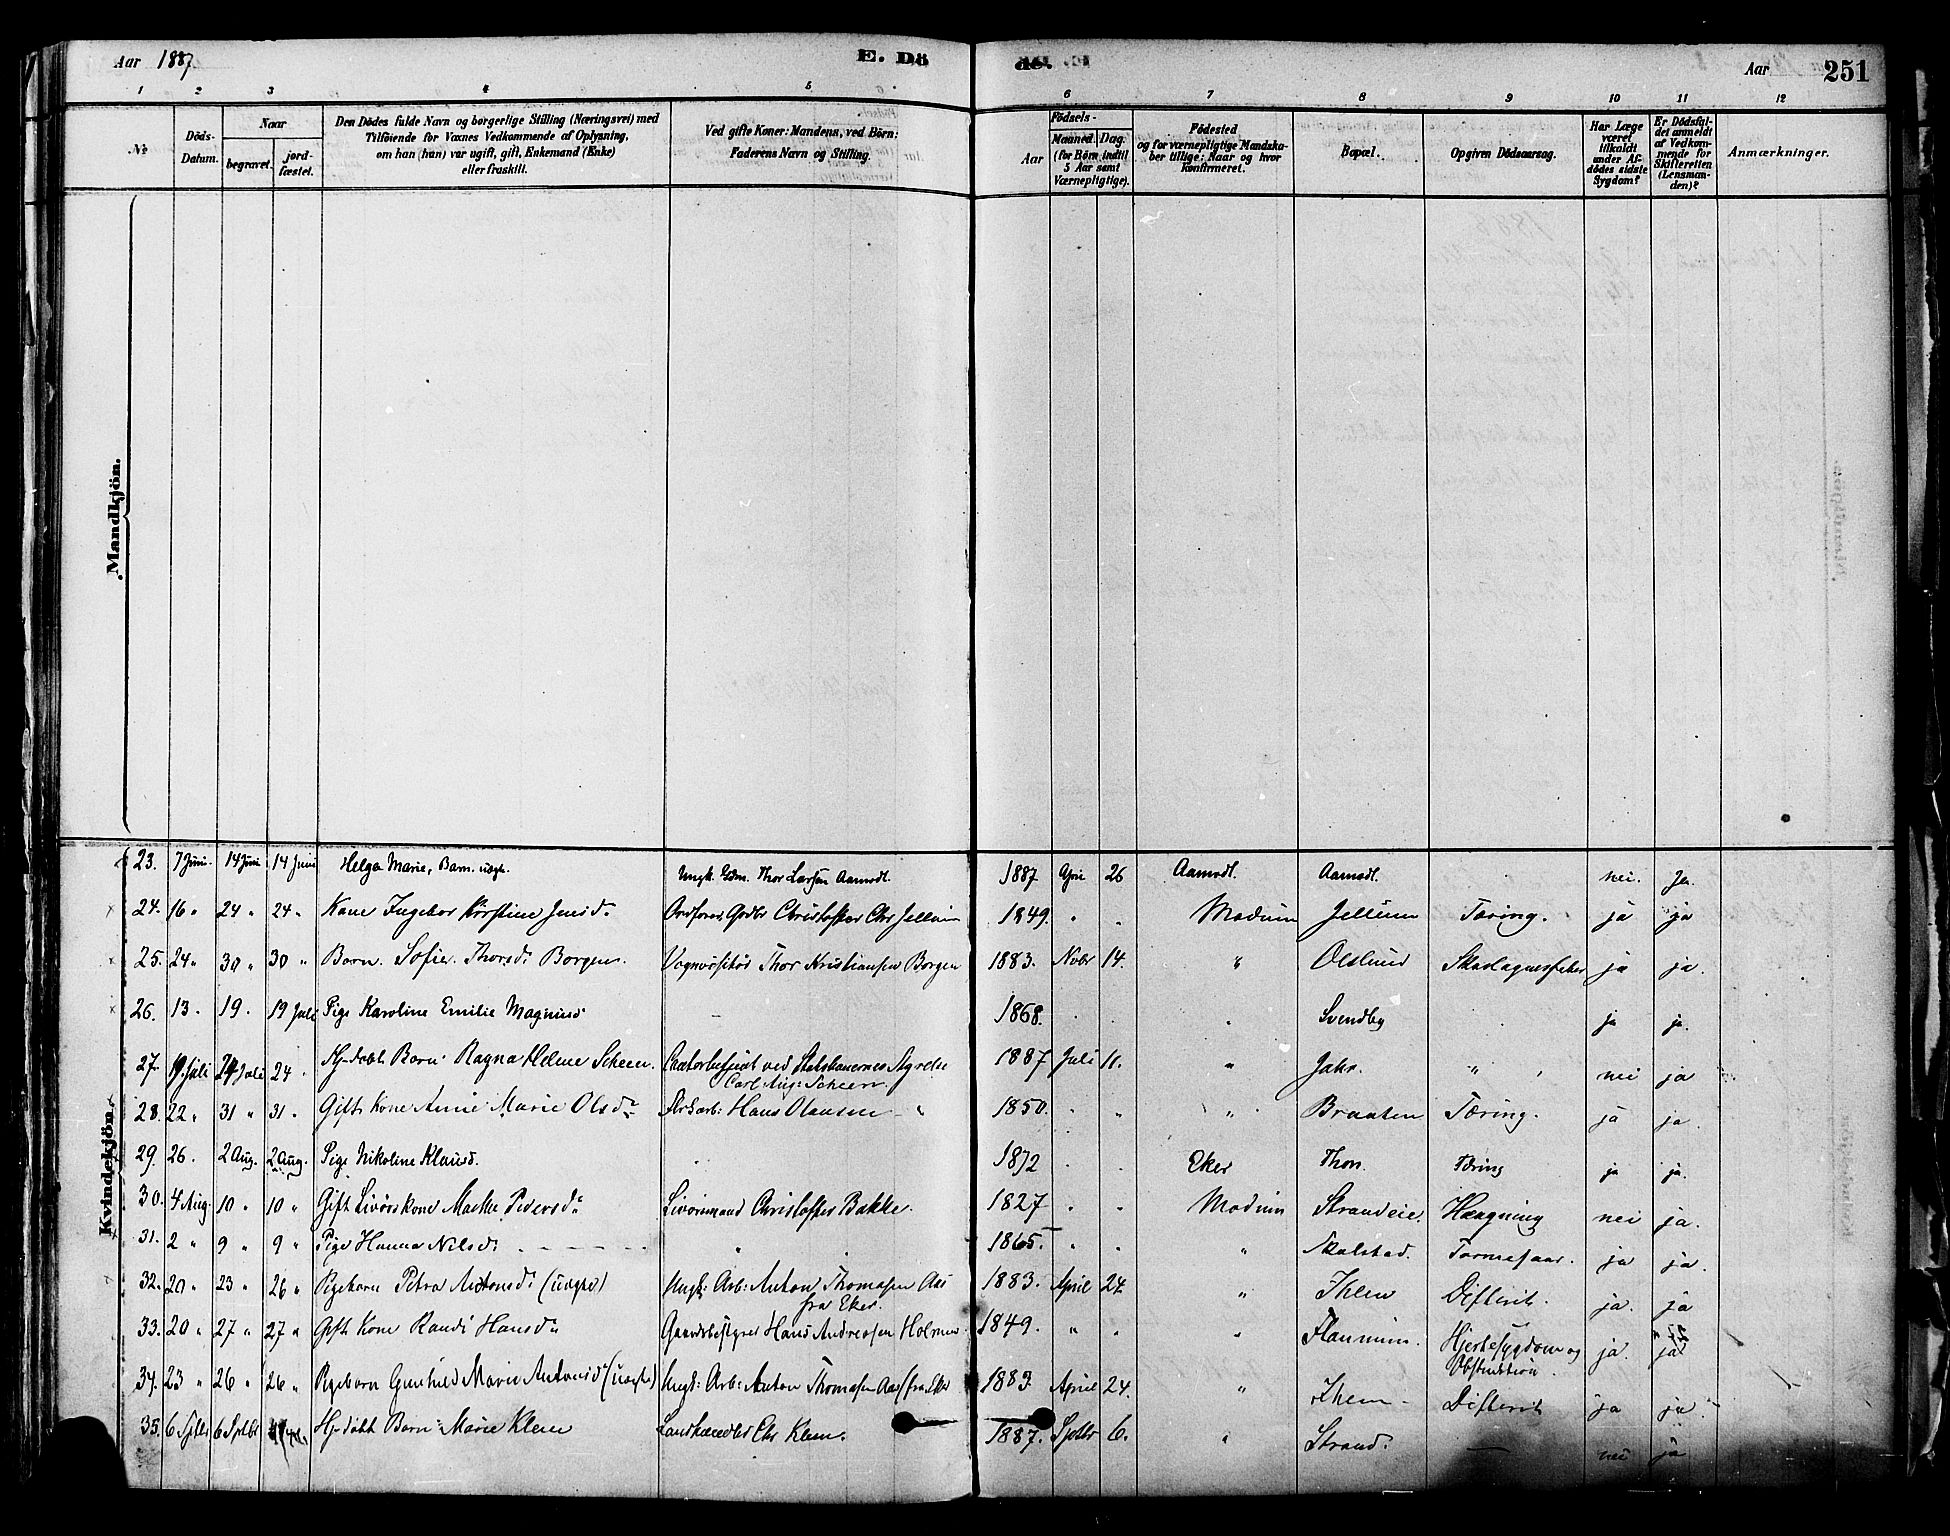 Aar 1887
E. Dö
de.
Aar
251
1 2 3 4 5 6 7 8 9 10 11 12
No
Döds-Datum.
Naar
begravet.
jord-fæstet.
Den Dödes fulde Navn og borgerlige Stilling (Næringsvei) med
Tilföiende for Voxnes Vedkommende af Oplysning,
om han (hun) var ugift, gift, Enkemand (Enke)
eller fraskilt.
Ved gifte Koner: Mandens, ved Börn:
Faderens Navn og Stilling.
Födsels-
Aar
Maaned. Dag.
(for Börn indtil
5 Aar samt
Værnepligtige).
Födested
og for værnepligtige Mandska-
ber tillige: Naar og hvor
konfirmeret.
Bopæl.
Opgiven Dödsaarsag.
Har Læge
været
tilkaldt
under Af-
dödes sidste
Sygdom?
Er Dödsfal-
det anmeldt
af Vedkom-
mende for
Skifteretten
(Lensman-
den)?
Anmærkninger.
Mandkjön.
Kvindekjön.
23. 7 Juni 14 Juni 14 Juni Helga Marie, Barn uægte. Ungk. Gdm. Thor Larsen Aamodt. 1887 April 26 Aamodt. Aamodt. nei. Ja.
24. 16 " 24 " 24 " Kone Ingebor Kirstine Jensd. Gbr Christoffer Chr Jellum 1849. " " Modum Jellum Tæring. ja ja
25. 24 " 30 " 30 " Barn Sofie Thorsd. Borgen. Thor Kristiansen Borgen 1883. Novbr 14. " Oslund Skarlagensfeber ja ja.
26. 13. 19. 19 Juli Pige Karoline Emilie Magnusd. 1868. " Svendby ja ja.
27. 19. Juli 24 Juli 24 " Hj-døbt Barn Ragna Helene Scheen. ved Statsbanernes Styrelse
Carl Aug: Scheen. 1887 Juli 11. " Jahr. " nei ja
28. 22 " 31 " 31 " Gift Kone Anne Marie Olsd. Hans Olausen 1850. " " " Braaten Tæring. ja ja.
29. 26. 2 Aug. 2 Aug. Pige Nikoline Klausd. " 1872 Eker Thon. Tæring ja ja.
30. 4 Aug. 10 " 10 " Gift Livørskone Marthe Pedersd. Livørsmand Christoffer Bakke. 1827 " " Modum Strandeie. Hængning nei ja.
31. 2 " 9 " 9 " Pige Hanna Nilsd. " 1865. " " " Skalstad. Tarmesaar. ja ja.
32. 20 " 23 " 26 " Pigebarn Petra Antonsd. (uægte) Ungk: Arb: Anton Thomasen Aas
fra Eker. 1883. April 24. " Ihlen Difterit. ja. ja
33. 20 " 27 " 27 " Gift Kone Randi Hansd. Gaardbestyrer Hans Andreasen Holmen 1849. " " " Flannum. Hjertesygdom og
Obstruktion ja. ja
34. 23 " 26 " 26 " Pigebarn Gunhild Marie Antonsd. (uægte) Ungk: Arb: Anton Thomasen Aas fra Eker 1883. April 24. " Ihlen Difterit ja ja.
35. 6 Sptbr 6 Sptbr Hj-døbt Barn Marie Klem Landhandler Chr Klem. 1887. Sptbr 6. " Strand. — nei ja